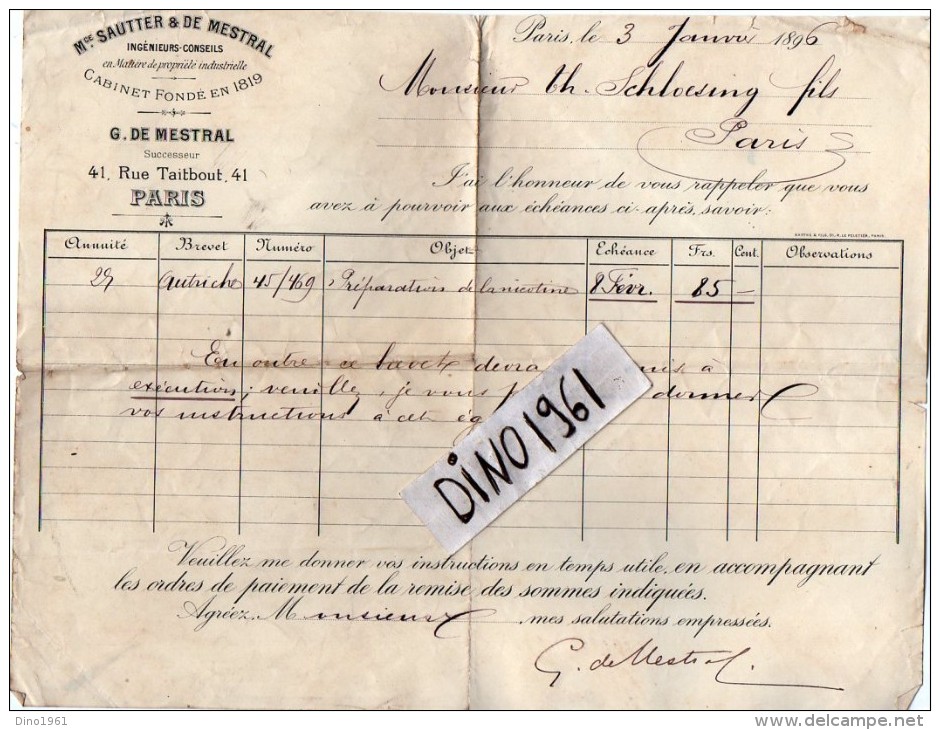 Mon SAUTTER & DE MESTRAL
INGÉNIEURS-CONSEILS
en Matière de propriété industrielle
CABINET FONDÉ EN 1819
G. DE MESTRAL
Successeur
41, Rue Taitbout, 41
PARIS
Paris, le 3 Janvier 1896
Monsieur Th. Schloesing fils
Paris
J'ai l'honneur de vous rappeler que vous
avez à pourvoir aux échéances ci-après, savoir:
Annuité Brevet Numéro Objet Echéance Frs. Cent. Observations
2e Autriche 45/469 Préparation de la nicotine 8 Févr. 85 —
En outre ce brevet devra à
exécution; veuillez, je vous donner
vos instructions à cet
DINO1961
Veuillez me donner vos instructions en temps utile, en accompagnant
les ordres de paiement de la remise des sommes indiquées.
Agréez, Monsieur, mes salutations empressées.
G. de Mestral
Dino1961
delcampe.net